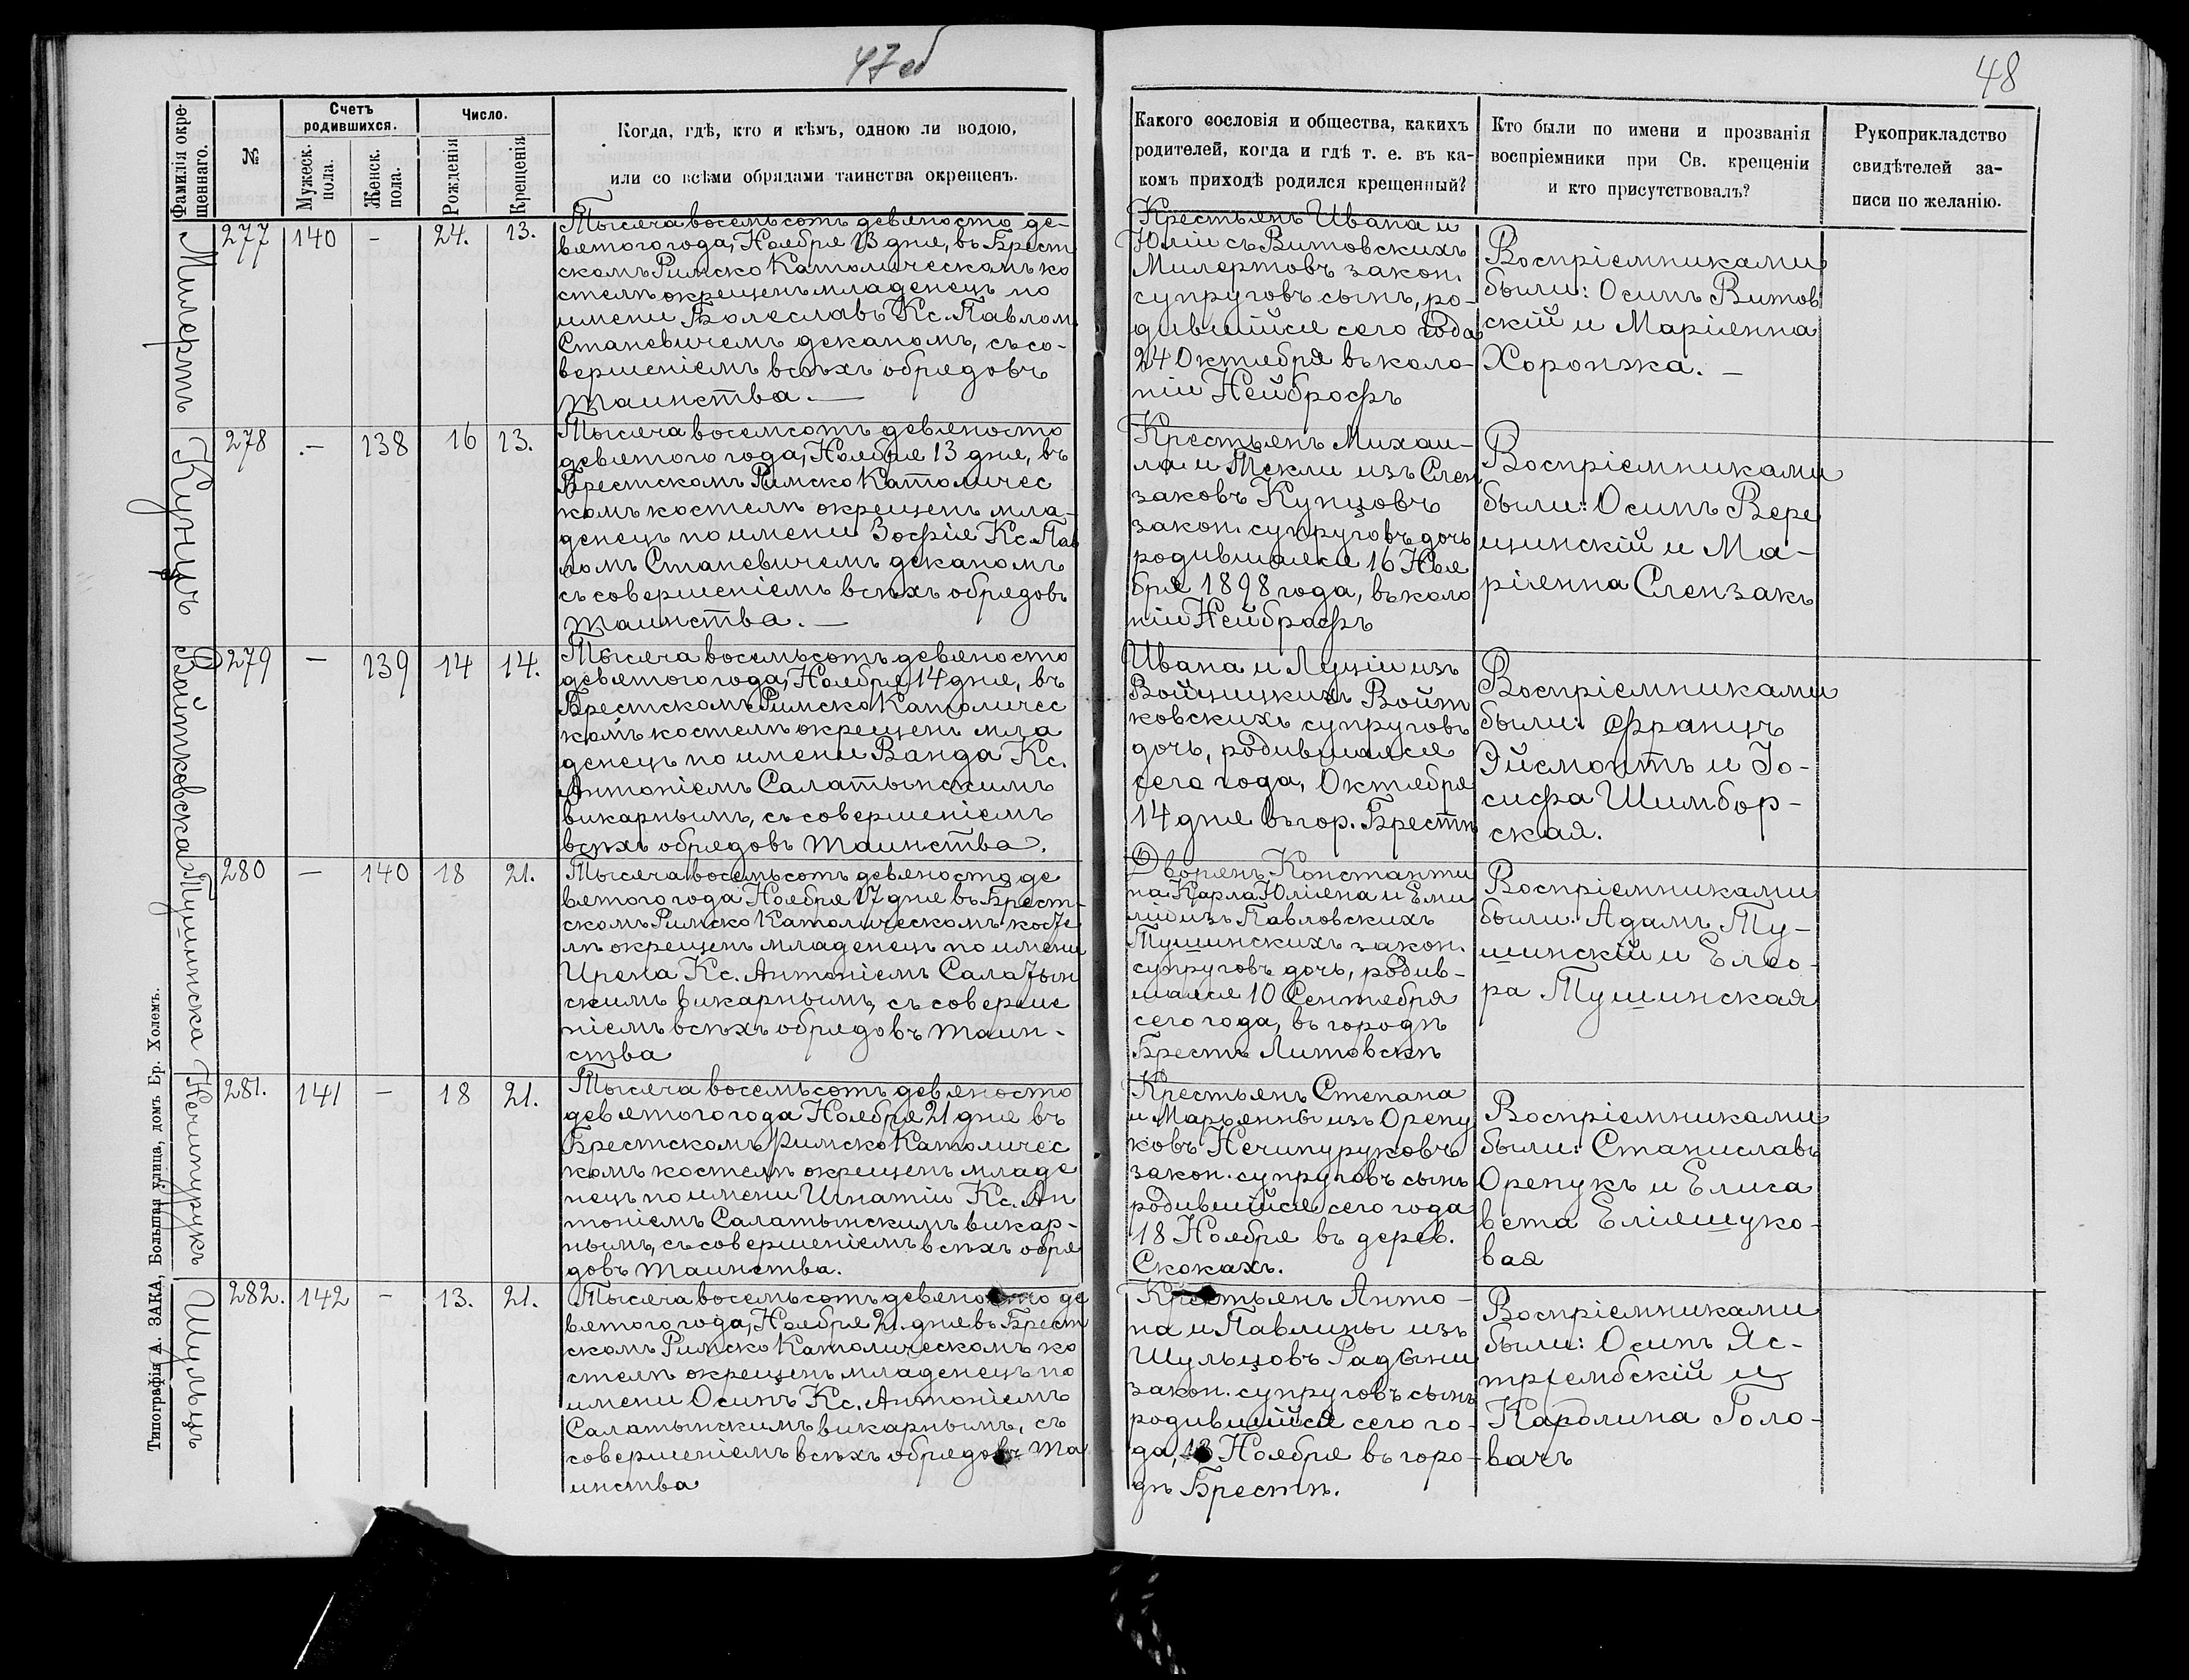 47 об
48
Фамилія окре-
щеннаго.
№
Счетъ
родившихся.
Мужеск.
пола.
Женск.
пола.
Число.
Рожденія
Крещенія
Когда, гдѣ, кто и кѣмъ, одною ли водою,
или со всѣми обрядами таинства окрещенъ.
Какого сословія и общества, какихъ
родителей, когда и гдѣ т. е. въ ка-
комъ приходѣ родился крещенный?
Кто были по имени и прозванія
воспріемники при Св. крещеніи
и кто присутствовалъ?
Рукоприкладство
свидѣтелей за-
писи по желанію.
Милертъ
277 140 - 24. 13.
Тысяча восемьсотъ девяносто де-
вятого года, Ноября 13 дня, въ Брест
скомъ Римско Католическомъ ко
стелѣ окрещенъ младенецъ по
имени Болеславъ Кс. Павломъ
Станевичемъ деканомъ, съ со-
вершеніемъ всѣхъ обрядовъ
таинства. —
Крестьянъ Ивана и
Юліи съ Витовскихъ
Милертовъ закон.
супруговъ сынъ, ро-
дившійся сего года
24 Октября въ коло-
ніи Нейброфъ
Воспріемниками
были: Осипъ Витов
скій и Маріянна
Хоронжа. —
Купцъ
278 - 138 16 13.
Тысяча восемсотъ девяносто
девятого года, Ноября 13 дня, въ
Брестскомъ Римско Католичес
комъ костелѣ окрещенъ мла-
денецъ по имени Зофія Кс. Пав
ломъ Станевичемъ деканомъ
съ совершеніемъ всѣхъ обрядовъ
таинства. —
Крестьянъ Михаи-
ла и Текли изъ Слен
заковъ Купцовъ
закон. супруговъ дочь
родившаяся 16 Ноя
бря 1898 года, въ коло
ніи Нейброфъ
Воспріемниками
были: Осипъ Вере
щинскій и Ма-
ріянна Слензакъ
Войтковска
279 - 139 14 14.
Тысяча восемьсотъ девяносто
девятого года, Ноября 14 дня, въ
Брестскомъ Римско Католичес
комъ костелѣ окрещенъ мла
денецъ по имени Ванда Кс.
Антоніемъ Салатынскимъ
викарнымъ, съ совершеніемъ
всѣхъ обрядовъ таинства.
Ивана и Луціи изъ
Войцицкихъ Войт
ковскихъ супруговъ
дочь, родившаяся
сего года, Октября
14 дня въ гор. Брестѣ
Воспріемниками
были: Францъ
Эйсмонтъ и Іо-
сифа Шимбор-
ская.
Тушинска
280 - 140 18 21.
Тысяча восемьсотъ девяносто де
вятого года Ноября 17 дня въ Брест-
скомъ Римско Католическомъ косте
лѣ окрещенъ младенецъ по имени
Ирена Кс. Антоніемъ Салатын
скимъ викарнымъ, съ соверше
ніемъ всѣхъ обрядовъ таин-
ства
Дворянъ Константи
на Карла Юліяна и Еми
ліи изъ Павловскихъ
Тушинскихъ закон.
супруговъ дочь, родив-
шаяся 10 Сентября
сего года, въ городѣ
Брестъ Литовскѣ
Воспріемниками
были: Адамъ Ту-
шинскій и Елео-
ра Тушинская
Нечипурукъ
281. 141 - 18 21.
Тысяча восемьсотъ девяносто
девятого года Ноября 21 дня въ
Брестскомъ Римско Католичес
комъ костелѣ окрещенъ младе
нецъ по имени Игнатій Кс. Ан
тоніемъ Салатынскимъ викар-
нымъ, съ совершеніемъ всѣхъ обря
довъ таинства.
Крестьянъ Степана
и Марьянны изъ Орепу
ковъ Нечипуруковъ
закон. супруговъ сынъ
родившійся сего года
18 Ноября въ дерев.
Скокахъ.
Воспріемниками
были: Станиславъ
Орепукъ и Елиса
вета Еліяшуко-
вая
Шульцъ
282. 142 - 13. 21.
Тысяча восемьсотъ девяносто де
вятого года, Ноября 21. дня въ Брест
скомъ Римско Католическомъ ко
стелѣ окрещенъ младенецъ по
имени Осипъ Кс. Антоніемъ
Салатынскимъ викарнымъ, съ
совершеніемъ всѣхъ обрядовъ Та
инства
Крестьянъ Анто-
на и Павлины изъ
Шульцовъ
закон. супруговъ сынъ
родившійся сего го-
да, 13 Ноября въ горо-
дѣ Брестѣ.
Воспріемниками
были: Осипъ Яс-
тржембскій и
Каролина Голо-
вачъ
Типографія А. ЗАКА, Большая улица, домъ Бр. Холемъ.